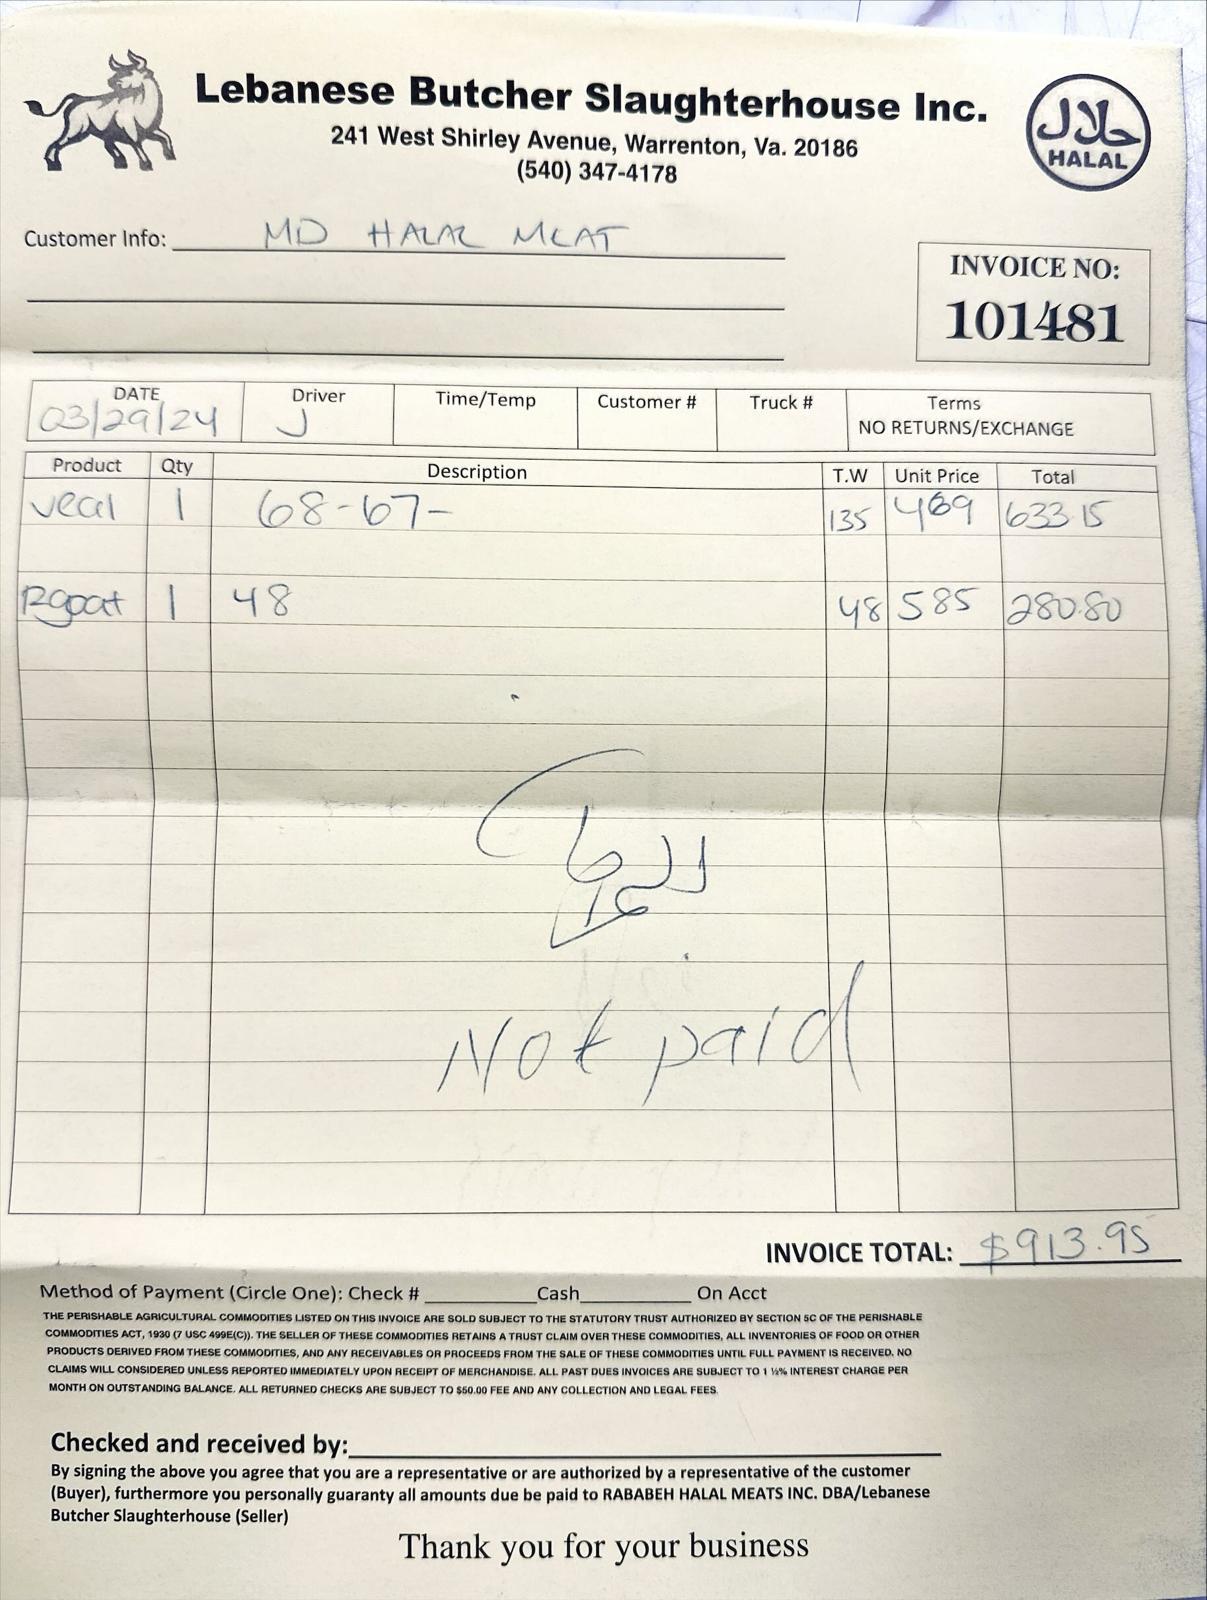 Lebanese Butcher Slaughterhouse Inc.
241 West Shirley Avenue, Warrenton, Va. 20186
(540) 347-4178
حلال
HALAL
Customer Info: MD HALAL MEAT
INVOICE NO:
101481
DATE Driver Time/Temp Customer # Truck # Terms
03/29/24 J NO RETURNS/EXCHANGE
Product Qty Description T.W Unit Price Total
veal 1 68-67- 135 469 633.15
Rgoat 1 48 48 585 280.80
Not paid
INVOICE TOTAL: $913.95
Method of Payment (Circle One): Check # Cash On Acct
THE PERISHABLE AGRICULTURAL COMMODITIES LISTED ON THIS INVOICE ARE SOLD SUBJECT TO THE STATUTORY TRUST AUTHORIZED BY SECTION 5C OF THE PERISHABLE
COMMODITIES ACT, 1930 (7 USC 499E(C)). THE SELLER OF THESE COMMODITIES RETAINS A TRUST CLAIM OVER THESE COMMODITIES, ALL INVENTORIES OF FOOD OR OTHER
PRODUCTS DERIVED FROM THESE COMMODITIES, AND ANY RECEIVABLES OR PROCEEDS FROM THE SALE OF THESE COMMODITIES UNTIL FULL PAYMENT IS RECEIVED. NO
CLAIMS WILL CONSIDERED UNLESS REPORTED IMMEDIATELY UPON RECEIPT OF MERCHANDISE. ALL PAST DUES INVOICES ARE SUBJECT TO 1 ½% INTEREST CHARGE PER
MONTH ON OUTSTANDING BALANCE. ALL RETURNED CHECKS ARE SUBJECT TO $50.00 FEE AND ANY COLLECTION AND LEGAL FEES.
Checked and received by:
By signing the above you agree that you are a representative or are authorized by a representative of the customer
(Buyer), furthermore you personally guaranty all amounts due be paid to RABABEH HALAL MEATS INC. DBA/Lebanese
Butcher Slaughterhouse (Seller)
Thank you for your business